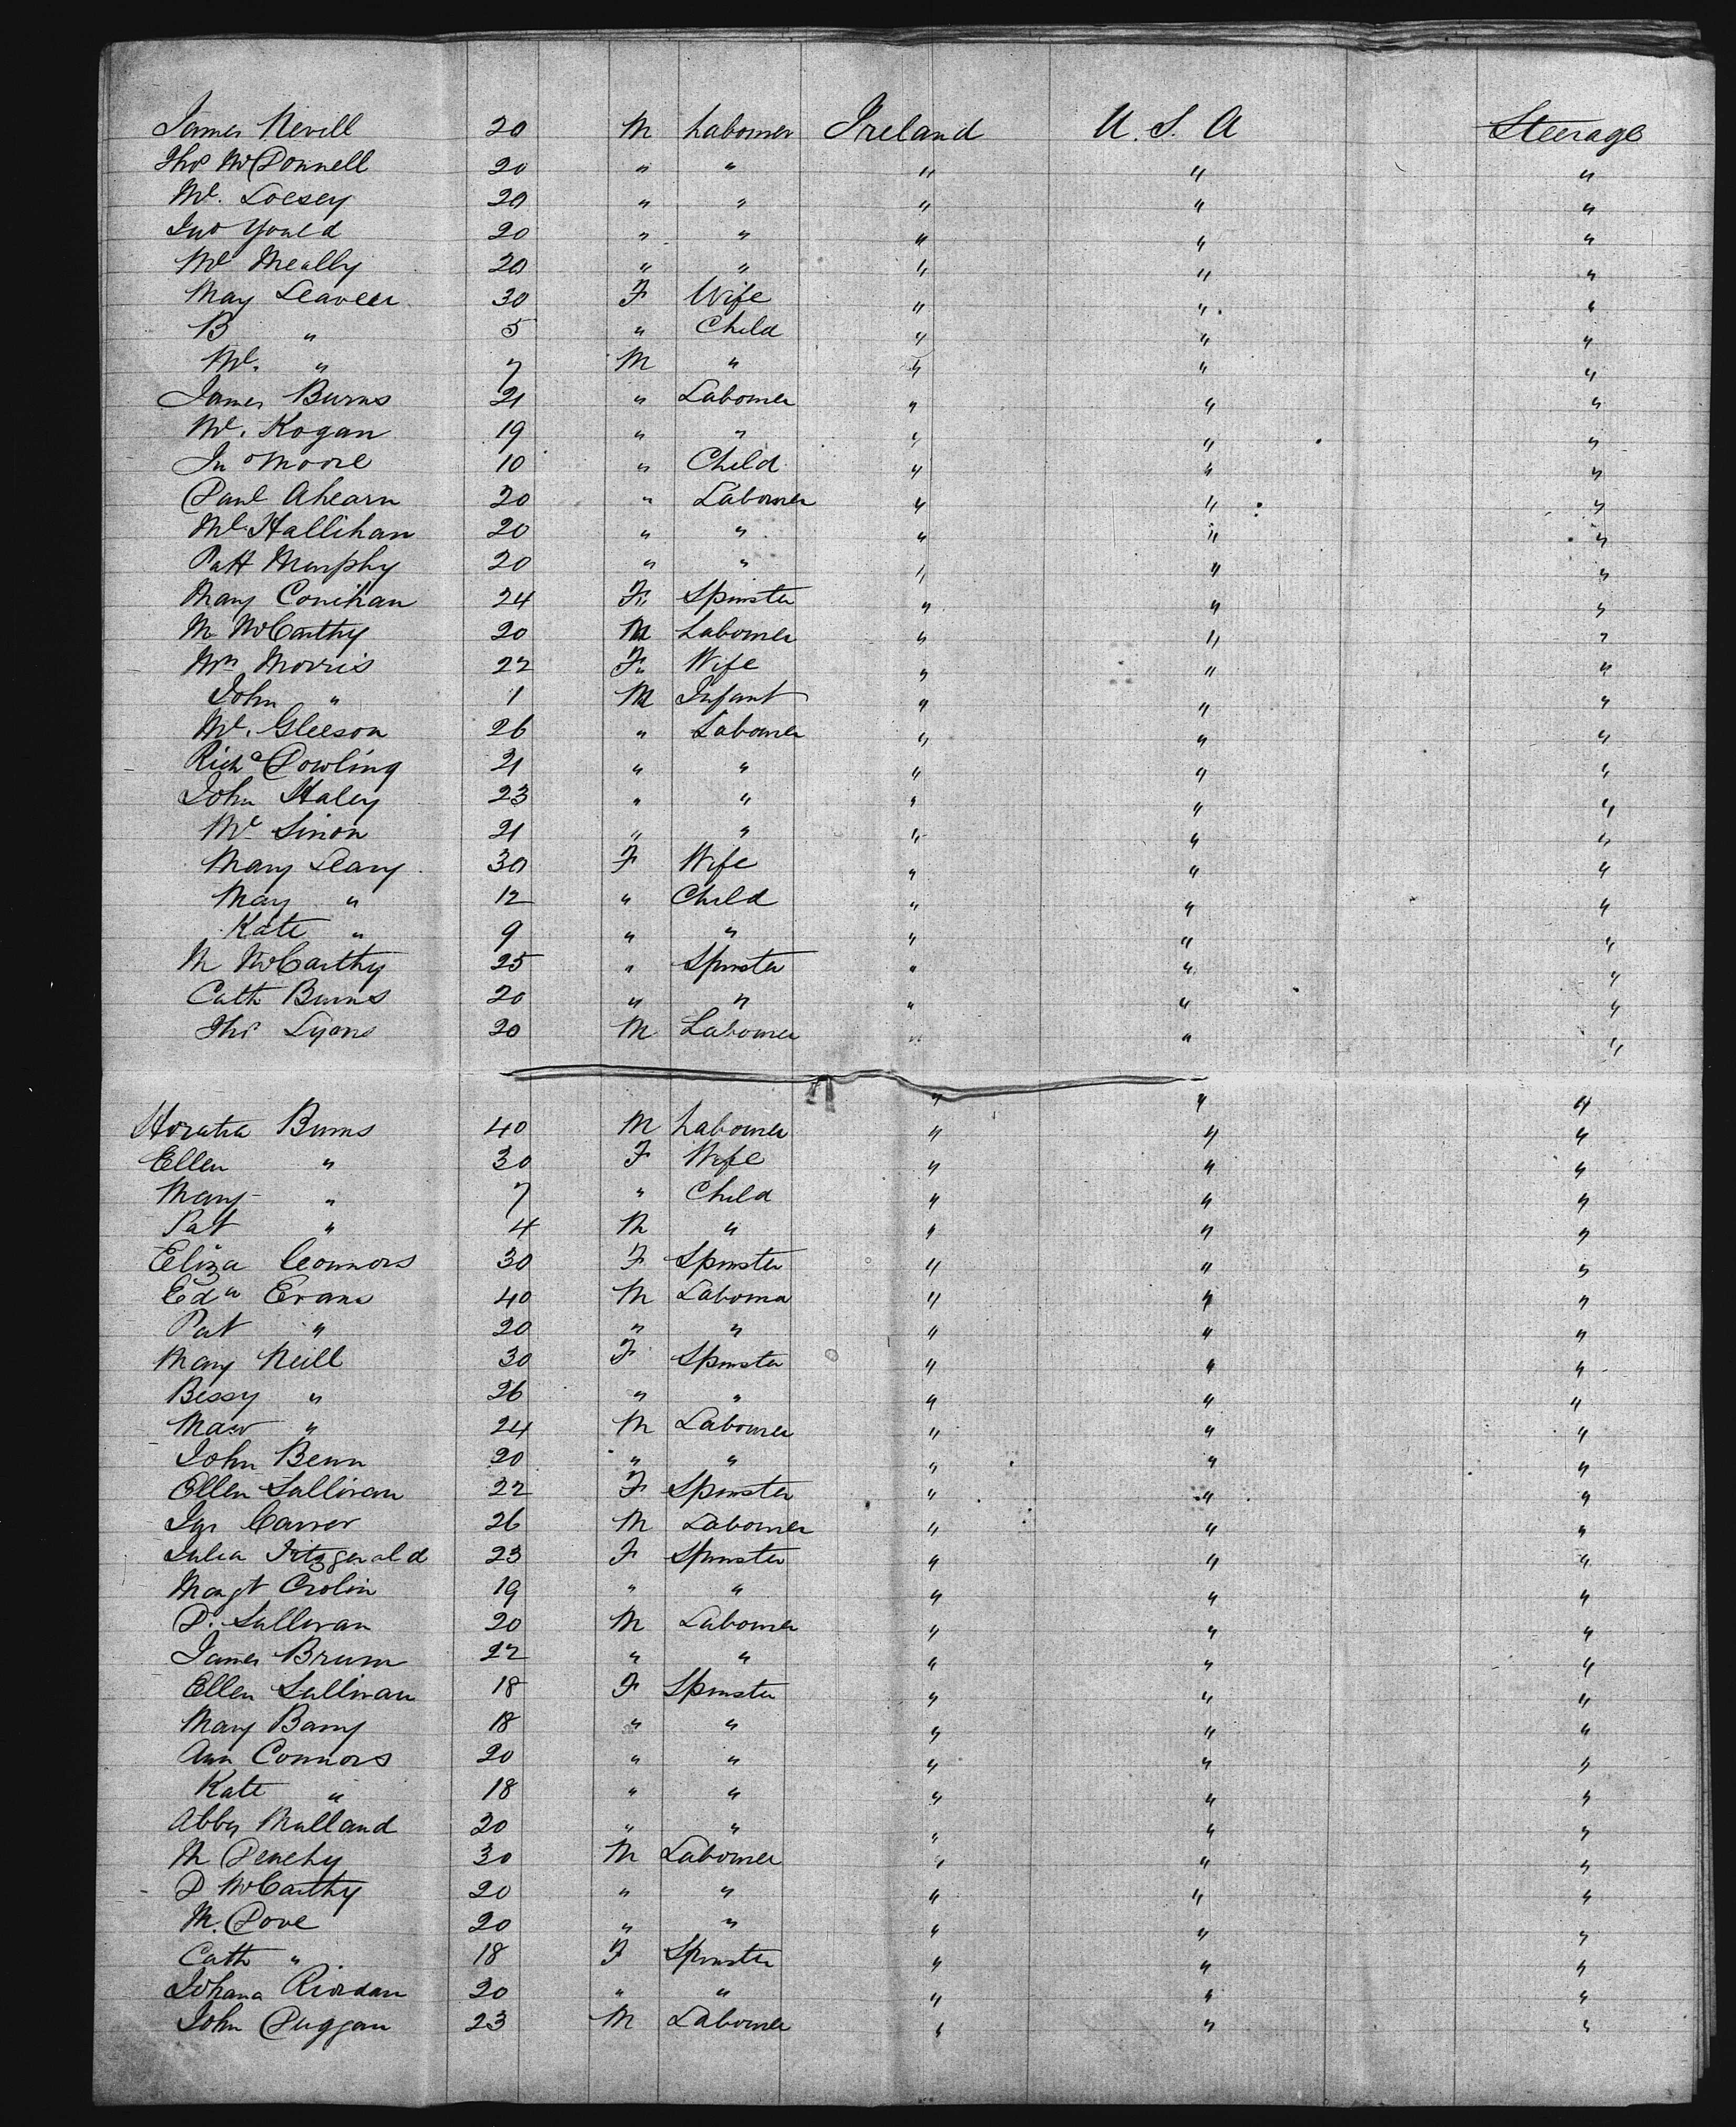 James Nevill 20 M Labourer Ireland U. S. A Steerage
Thos McDonnell 20 " " " " "
Ml. Loesey 20 " " " " "
Jno Yould 20 " " " " "
Ml Meally 20 " " " " "
May Leaveer 30 F Wife " " "
B " 5 " Child " " "
Ml. " 7 M " " " "
James Burns 21 " Labourer " " "
Ml. Kogan 19 " " " " "
Jno Moore 10 " Child " " "
Danl Ahearn 20 " Labourer " " "
Ml. Hallihan 20 " " " " "
Patt Murphy 20 " " " " "
Mary Conihan 24 F Spinster " " "
M McCarthy 20 M Labourer " " "
Mrs Morris 22 F Wife " " "
John " 1 M Infant " " "
Ml. Gleeson 26 " Labourer " " "
Richd Dowling 21 " " " " "
John Haley 23 " " " " "
Ml Sinon 21 " " " " "
Mary Leary 30 F Wife " " "
May " 12 " Child " " "
Kate " 9 " " " " "
M McCarthy 25 " Spinster " " "
Cath Burns 20 " " " " "
Thos Lyons 20 M Labourer " " "
" " "
Horatia Burns 40 M Labourer " " "
Ellen " 30 F Wife " " "
Mary " 7 " Child " " "
Pat " 4 M " " " "
Eliza Connors 30 F Spinster " " "
Edw Evans 40 M Labourer " " "
Pat " 20 " " " " "
Mary Neill 30 F Spinster " " "
Bessy " 26 " " " " "
" 24 M Labourer " " "
John Benn 20 " " " " "
Ellen Sullivan 22 F Spinster " " "
Carver 26 M Labourer " " "
Julia Fitzgerald 23 F Spinster " " "
Margt Crolin 19 " " " " "
D. Sullivan 20 M Labourer " " "
James Brum 22 " " " " "
Ellen Sullivan 18 F Spinster " " "
Mary Barry 18 " " " " "
Ann Connors 20 " " " " "
Kate " 18 " " " " "
Abby Mulland 30 " " " " "
M Denehy 30 M Labourer " " "
D McCarthy 20 " " " " "
M. Dove 20 " " " " "
Cath " 18 F Spinster " " "
Johana Riordan 20 " " " " "
John Duggan 23 M Labourer " " "